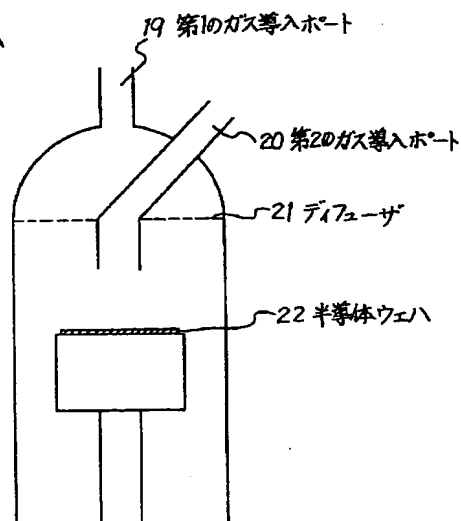 19 第1のガス導入ポート
20 第2のガス導入ポート
21 ディフューザ
22 半導体ウェハ